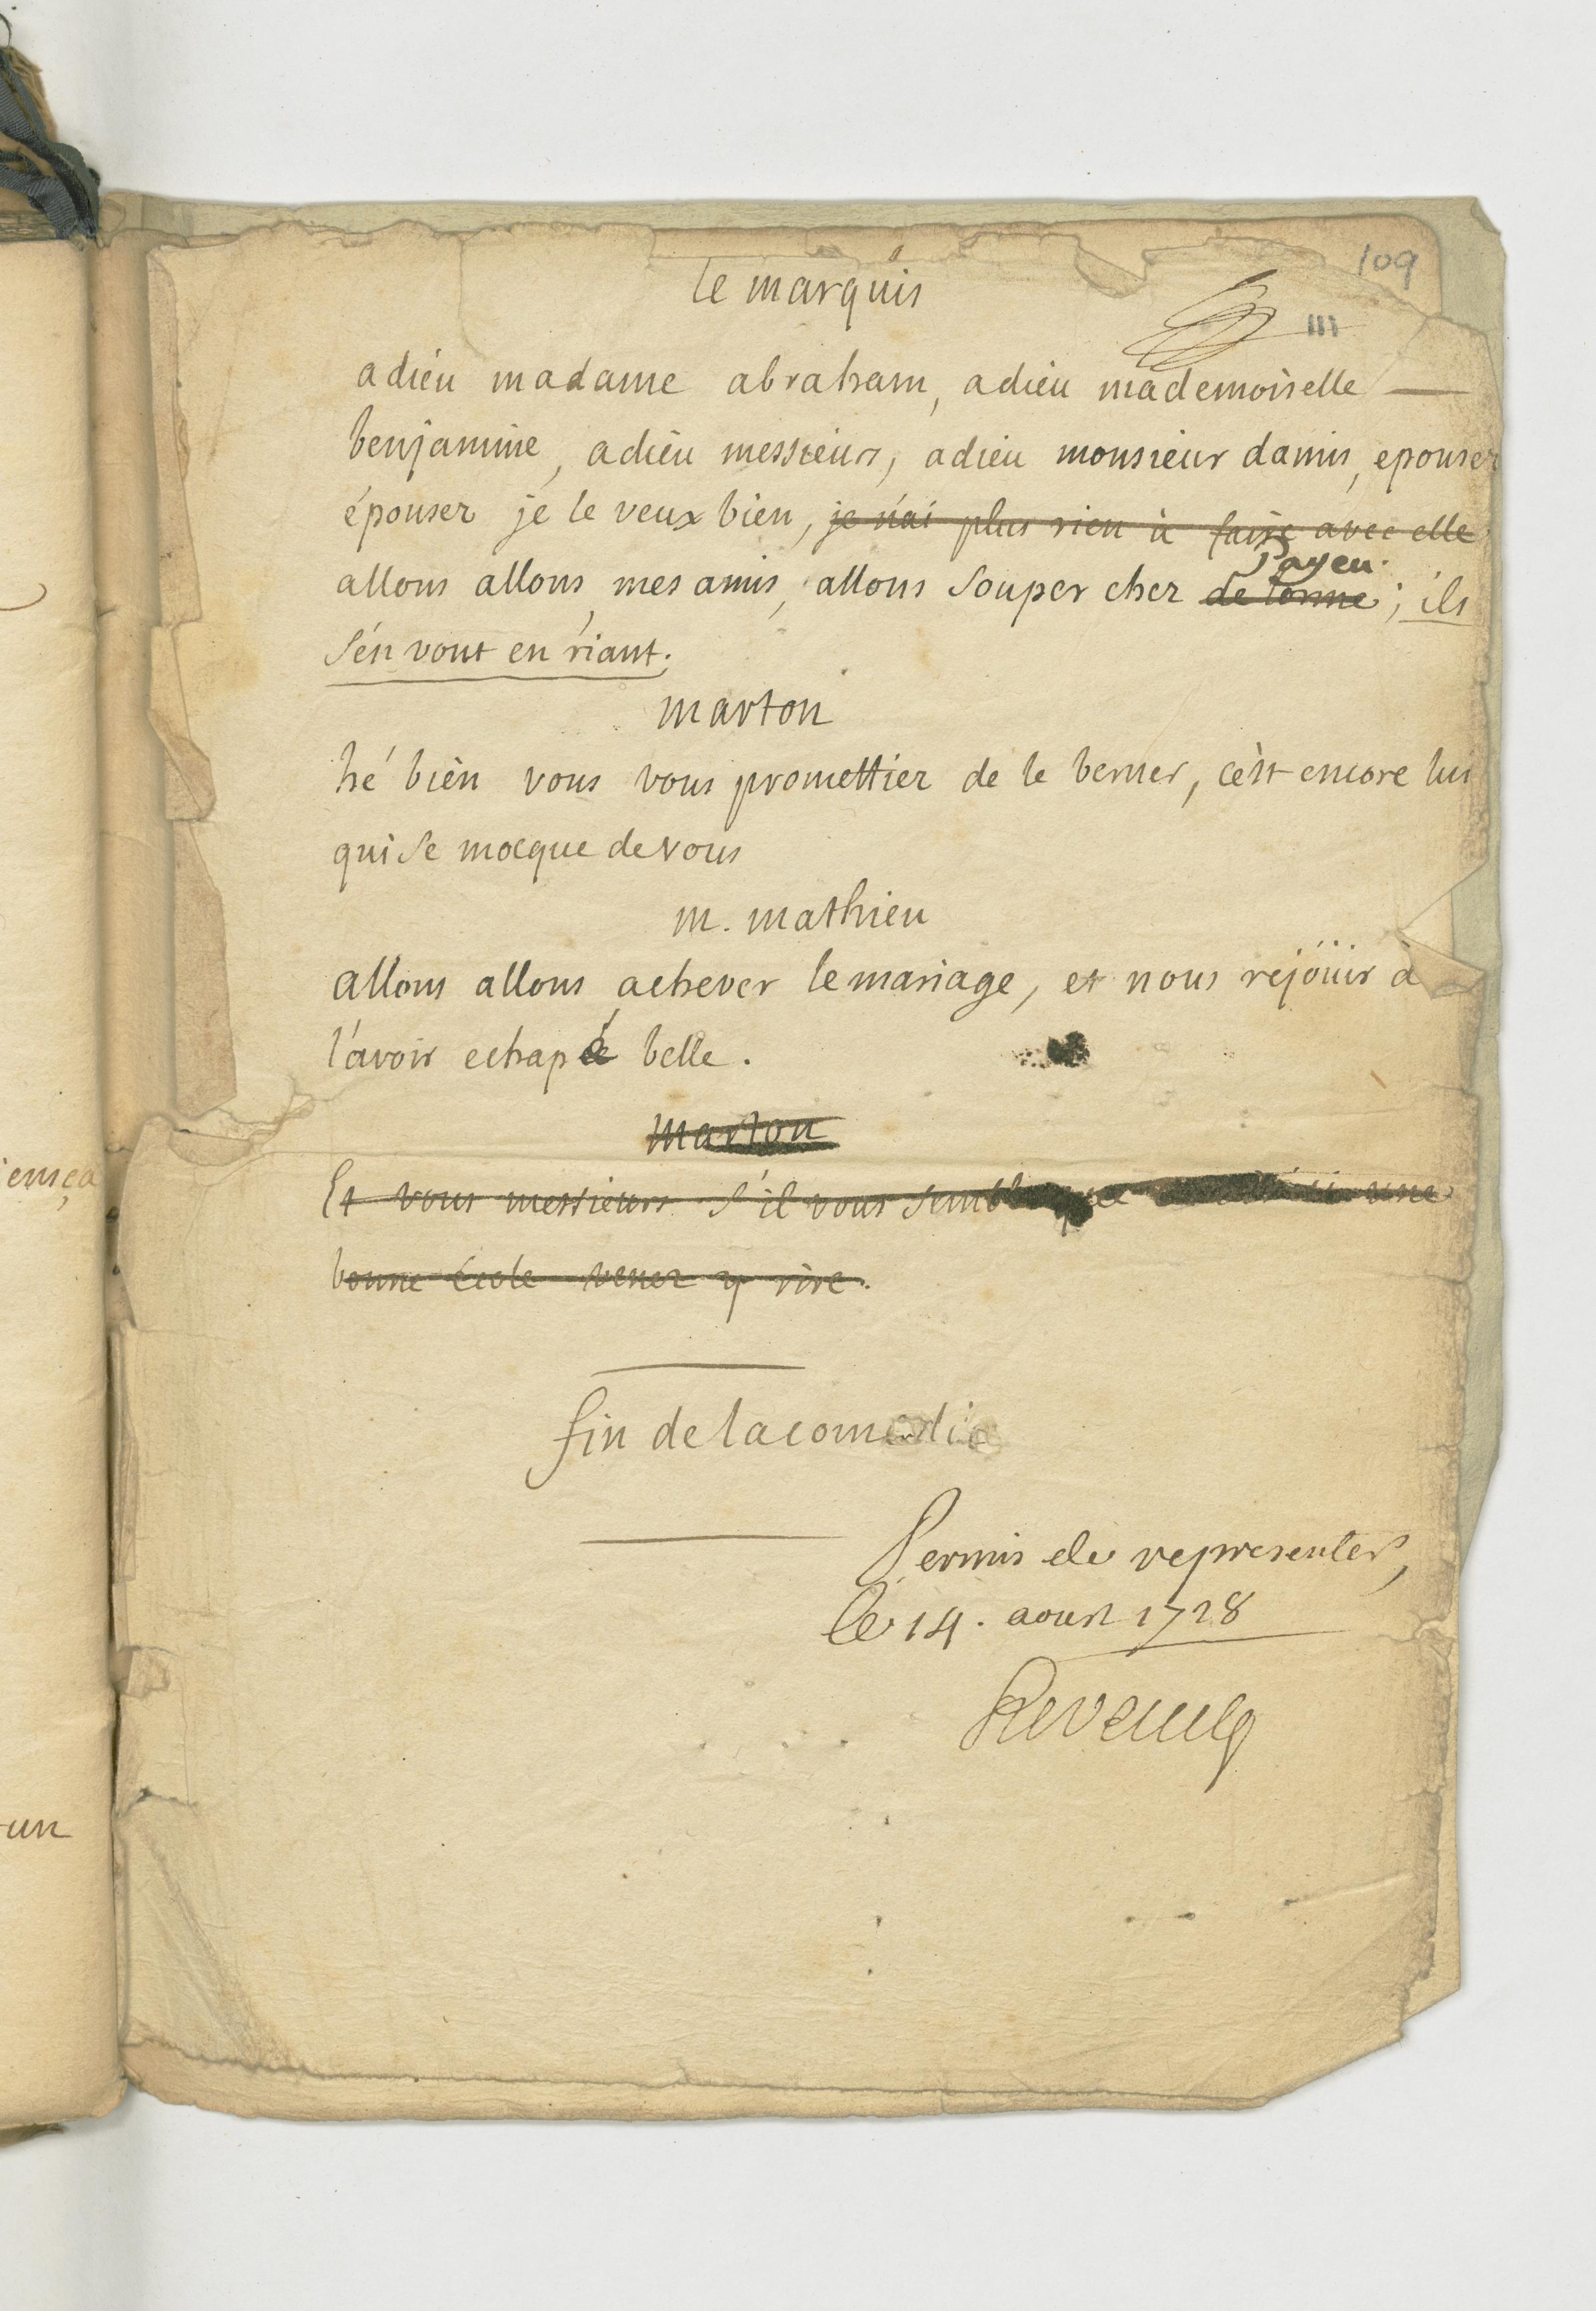 109
le marquis
111
adieu madame abraham, adieu mademoiselle
benjamine, adieu messieurs, adieu monsieur damis, epouser
épouser je le veux bien, je n'ai plus rien à faire avec elle
payen.
allons allons, mes amis, allons souper chez de lorme; ils
s'en vont en riant.
marton
hé bien vous vous promettiez de le berner, c'est encore lui
qui se mocque de vous
m. mathieu
allons allons achever le mariage, et nous rejoüir à
l'avoir echapé belle.
marton
Et vous messieurs s'il vous semble que une
bonne école venez y rire.
fin de la comedie
Permis de representer,
le 14. aoust 1728
iença
un